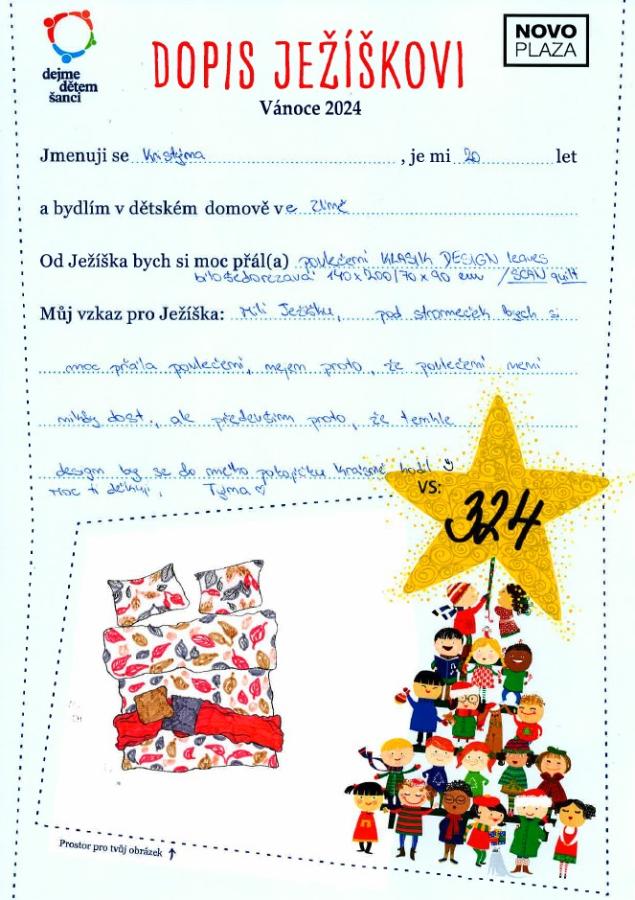 dejme
dětem
šanci
NOVO
PLAZA
DOPIS JEŽÍŠKOVI
Vánoce 2024
Jmenuji se Kristýna, je mi 20 let
a bydlím v dětském domově ve Zlíně
Od Ježíška bych si moc přál(a) povlečení KLASIK DESIGN leaves
bílošedorezavá 140x200/70x90 cm /SCAN quilt
Můj vzkaz pro Ježíška: Milý Ježíšku, pod stromeček bych si
moc přála povlečení, nejen proto, že povlečení není
nikdy dost, ale především proto, že tenhle
design by se do mého pokojíčku krásně hodil
Moc ti děkuji, Týna
VS:
324
Prostor pro tvůj obrázek